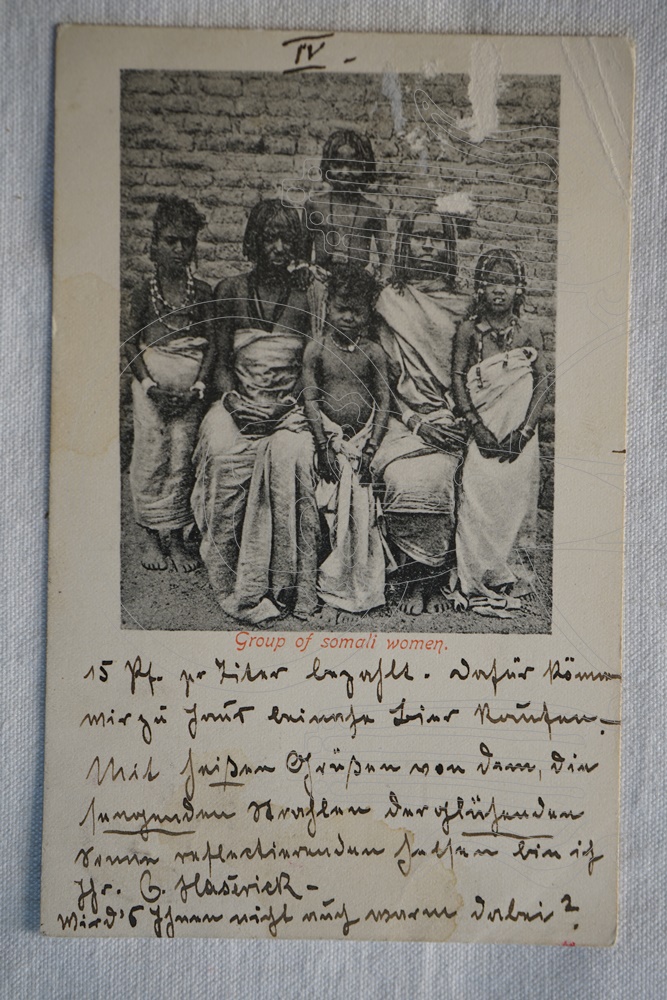 IV.
Group of somali women.
15 Pf. pr Liter bezahlt. Dafür können
wir zu Haus beinahe Bier kaufen. –
Mit heißen Grüßen von dem, die
sengenden Strahlen der glühenden
Sonne reflectierenden Felsen bin ich
Ihr. C.
Wird's Ihnen nicht auch warm dabei?